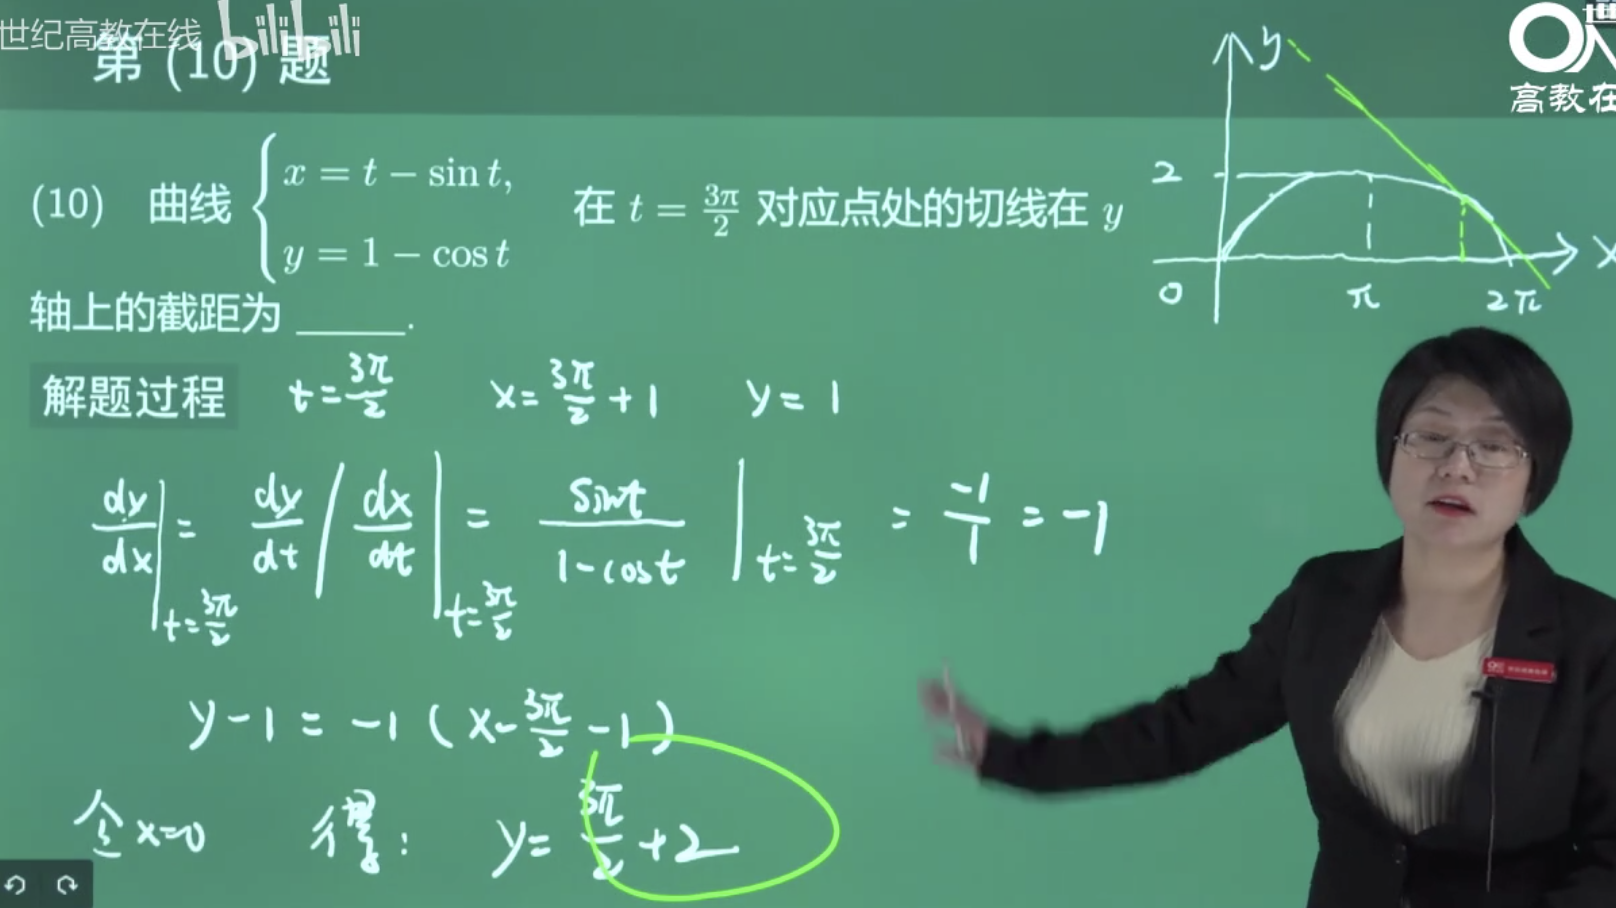 世纪高教在线 bilibili
第 (10) 题
高教在
(10) 曲线 { x = t − sin t, y = 1 − cos t 在 t = 3π/2 对应点处的切线在 y
轴上的截距为 ______.
y
2
0 π 2π x
解题过程 t = 3π/2 x = 3π/2 + 1 y = 1
dy/dx |t=3π/2 = dy/dt / dx/dt |t=3π/2 = sint/(1-cost) |t=3π/2 = -1/1 = -1
y-1 = -1 ( x - 3π/2 - 1 )
令 x=0 得: y = 3π/2 + 2